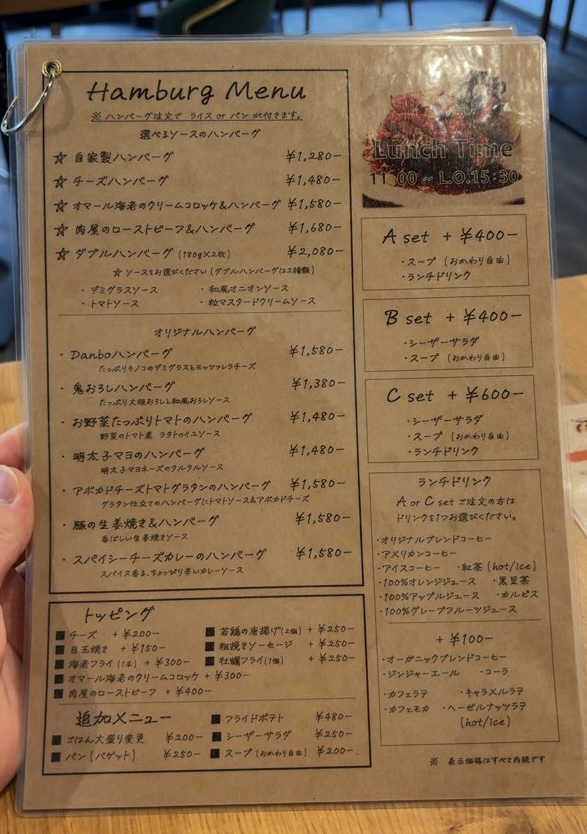 Hamburg Menu
※ ハンバーグ注文で ライス or パン が付きます。
選べるソースのハンバーグ
☆ 自家製ハンバーグ ¥1,280−
☆ チーズハンバーグ ¥1,480−
☆ オマール海老のクリームコロッケ&ハンバーグ ¥1,580−
☆ 肉屋のローストビーフ&ハンバーグ ¥1,680−
☆ ダブルハンバーグ (180g×2枚) ¥2,080−
☆ ソースをお選びください (ダブルハンバーグは2種類)
・デミグラスソース ・和風オニオンソース
・トマトソース ・粒マスタードクリームソース
オリジナルハンバーグ
・Danboハンバーグ ¥1,580−
たっぷりキノコのデミグラスとモッツァレラチーズ
・鬼おろしハンバーグ ¥1,380−
たっぷり大根おろしと和風おろしソース
・お野菜たっぷりトマトのハンバーグ ¥1,480−
野菜のトマト煮 ラタトゥイユソース
・明太子マヨのハンバーグ ¥1,480−
明太子マヨネーズのタルタルソース
・アボカドチーズトマトグラタンのハンバーグ ¥1,580−
グラタン仕立てのハンバーグにトマトソース&アボカドチーズ
・豚の生姜焼き&ハンバーグ ¥1,580−
香ばしい生姜焼きソース
・スパイシーチーズカレーのハンバーグ ¥1,580−
スパイス香る、ちょっぴり辛いカレーソース
トッピング
■ チーズ +¥200−
■ 目玉焼き +¥150−
■ 海老フライ(1本) +¥300−
■ オマール海老のクリームコロッケ +¥300−
■ 肉屋のローストビーフ +¥400−
■ 若鶏の唐揚げ(2個) +¥250−
■ 粗挽きソーセージ +¥250−
■ 牡蠣フライ(1個) +¥250−
追加メニュー
■ ごはん大盛り変更 ¥200−
■ パン(バゲット) ¥250−
■ フライドポテト ¥480−
■ シーザーサラダ ¥250−
■ スープ(おかわり自由) ¥200−
Lunch Time
11:00 〜 L.O.15:30
A set +¥400−
・スープ (おかわり自由)
・ランチドリンク
B set +¥400−
・シーザーサラダ
・スープ (おかわり自由)
C set +¥600−
・シーザーサラダ
・スープ (おかわり自由)
・ランチドリンク
ランチドリンク
A or C set ご注文の方は
ドリンクを1つお選びください。
・オリジナルブレンドコーヒー
・アメリカンコーヒー
・アイスコーヒー ・紅茶 (hot/ice)
・100%オレンジジュース ・黒豆茶
・100%アップルジュース ・カルピス
・100%グレープフルーツジュース
+¥100−
・オーガニックブレンドコーヒー
・ジンジャーエール ・コーラ
・カフェラテ ・キャラメルラテ
・カフェモカ ・ヘーゼルナッツラテ
(hot/ice)
※ 表示価格はすべて内税です